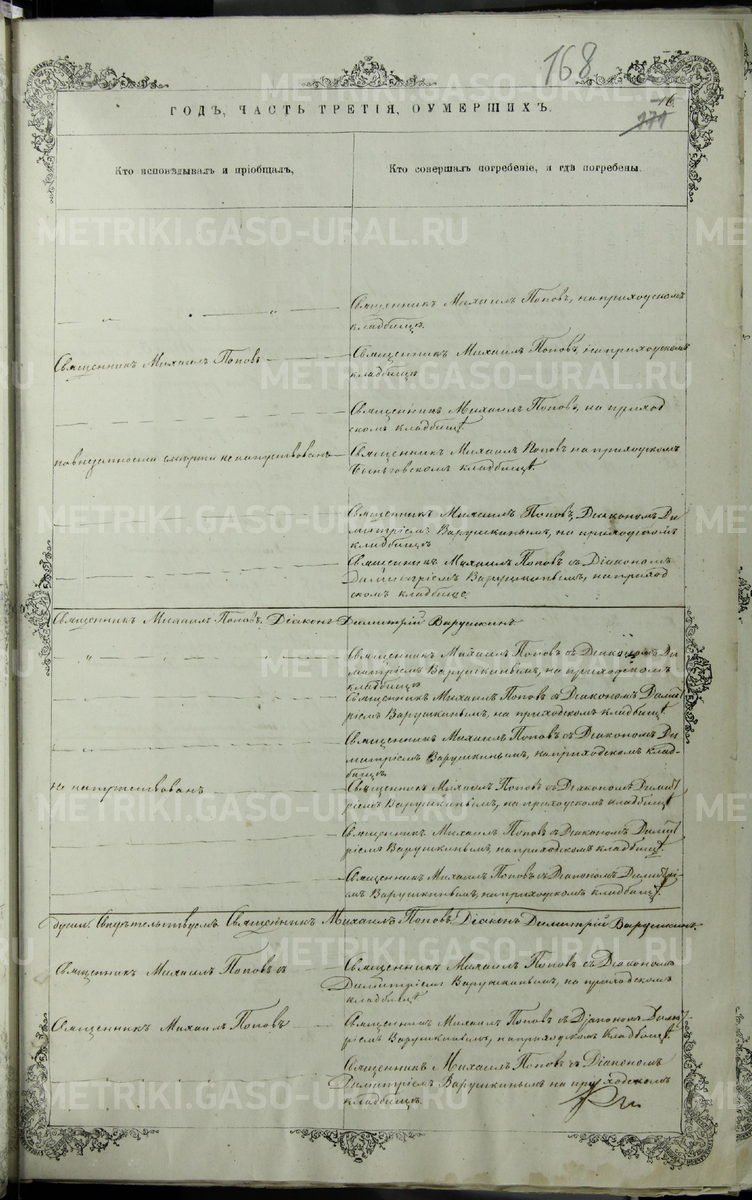 168
16
171
ГОДЪ, ЧАСТЬ ТРЕТІЯ, ОУМЕРШИХЪ.
Кто исповѣдывалъ и пріобщалъ,
Кто совершалъ погребеніе, и гдѣ погребены.
METRIKI.GASO-URAL.RU
Священникъ Михаилъ Поповъ, на приходскомъ
кладбищѣ.
Священникъ Михаилъ Поповъ
Священникъ Михаилъ Поповъ на приходскомъ
кладбищѣ
Священникъ Михаилъ Поповъ, на приход
скомъ кладбищѣ.
смерти не напутствованъ
Священникъ Михаилъ Поповъ на приходскомъ
Быньговскомъ кладбищѣ.
Священникъ Михаилъ Поповъ, Діакономъ Ди
митріемъ Варушкинымъ, на приходскомъ
кладбищѣ
Священникъ Михаилъ Поповъ съ Діакономъ
Димитріемъ Варушкинымъ, на приход
скомъ кладбище
Священникъ Михаилъ Поповъ. Діаконъ Димитрій Варушкинъ
Священникъ Михаилъ Поповъ съ Діакономъ Ди
митріемъ Варушкинымъ, на приходскомъ
кладбищѣ
Священникъ Михаилъ Поповъ съ Діакономъ Димит
ріемъ Варушкинымъ, на приходскомъ кладбищѣ
Священникъ Михаилъ Поповъ съ Діакономъ Ди
митріемъ Варушкинымъ, на приходскомъ клад-
бищѣ.
не напутствованъ
Священникъ Михаилъ Поповъ съ Діакономъ Димит
ріемъ Варушкинымъ, на приходскомъ кладбищѣ
Священникъ Михаилъ Поповъ съ Діакономъ Димит
ріемъ Варушкинымъ, на приходскомъ кладбищѣ.
Священникъ Михаилъ Поповъ съ Діакономъ Димитрі-
емъ Варушкинымъ, на приходскомъ кладбищѣ.
души. Свидѣтельствуемъ Священникъ Михаилъ Поповъ. Діаконъ Димитрій Варушкинъ.
Священникъ Михаилъ Поповъ съ
Священникъ Михаилъ Поповъ съ Діакономъ
Димитріемъ Варушкинымъ, на приходскомъ
кладбищѣ
Священникъ Михаилъ Поповъ
Священникъ Михаилъ Поповъ съ Діакономъ Димит
ріемъ Варушкинымъ, на приходскомъ кладбищѣ.
Священникъ Михаилъ Поповъ съ Діакономъ
Димитріемъ Варушкинымъ на приходскомъ
кладбищѣ.